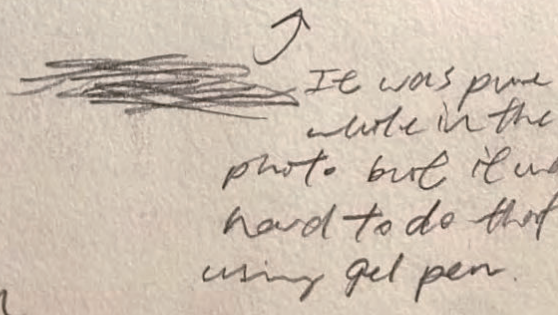 It was pure
white in the
photo but it wa
hard to do that
using gel pen.